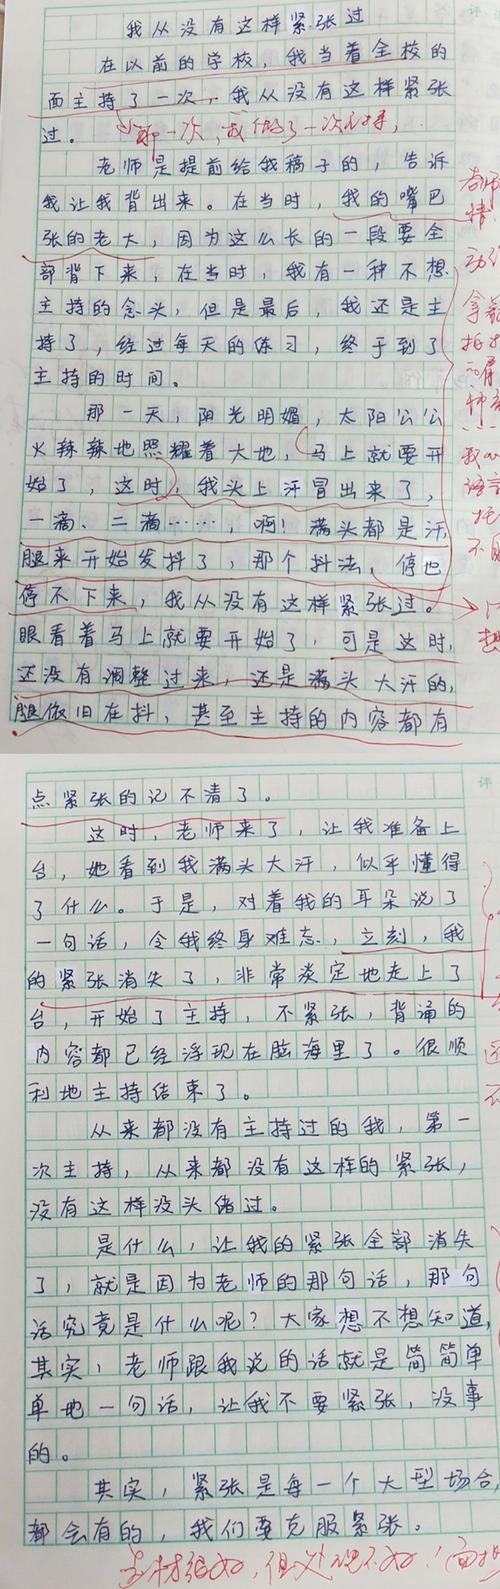 我从没有这样紧张过
在以前的学校，我当着全校的
面主持了一次，我从没有这样紧张
过。
老师是提前给我稿子的，告诉
我让我背出来。在当时，我的嘴巴
张的老大，因为这么长的一段要全
部背下来，在当时，我有一种不想
主持的念头，但是最后，我还是主
持了，经过每天的练习，终于到了
主持的时间。
那一天，阳光明媚，太阳公公
火辣辣地照耀着大地，马上就要开
始了，这时，我头上汗冒出来了，
一滴、二滴……，啊！满头都是汗，
腿来开始发抖了，那个抖法，停也
停不下来，我从没有这样紧张过。
眼看着马上就要开始了，可是这时，
还没有调整过来，还是满头大汗的，
腿依旧在抖，甚至主持的内容都有
评
点紧张的记不清了。
这时，老师来了，让我准备上
台，她看到我满头大汗，似乎懂得
了什么。于是，对着我的耳朵说了
一句话，令我终身难忘，立刻，我
的紧张消失了，非常淡定地走上了
台，开始了主持，不紧张，背诵的
内容都已经浮现在脑海里了。很顺
利地主持结束了。
从来都没有主持过的我，第一
次主持，从来都没有这样的紧张，
没有这样没头绪过。
是什么，让我的紧张全部消失
了，就是因为老师的那句话，那句
话究竟是什么呢？大家想不想知道，
其实，老师跟我说的话就是简简单
单地一句话，让我不要紧张，没事
的。
其实，紧张是每一个大型场合，
都会有的，我们要克服紧张。